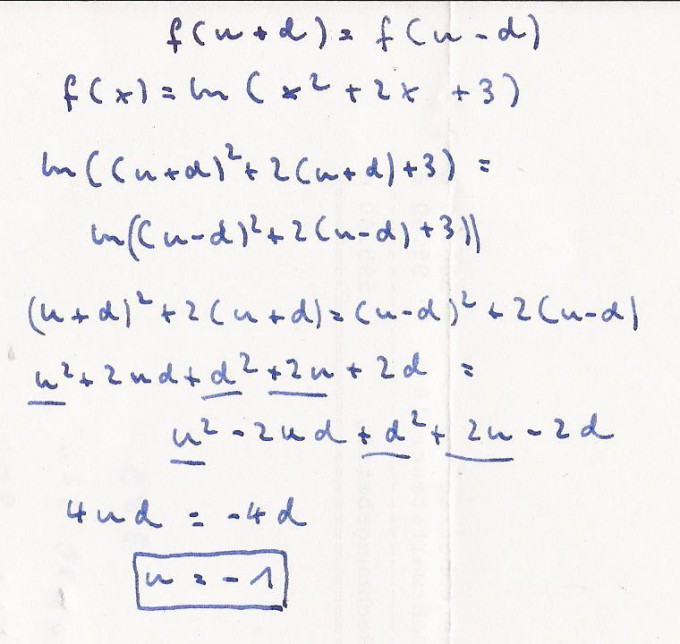 f(u+d) = f(u-d)
f(x) = ln(x² + 2x + 3)
ln((u+d)² + 2(u+d) + 3) =
ln((u-d)² + 2(u-d) + 3))
(u+d)² + 2(u+d) = (u-d)² + 2(u-d)
u² + 2ud + d² + 2u + 2d =
u² - 2ud + d² + 2u - 2d
4ud = -4d
u = -1